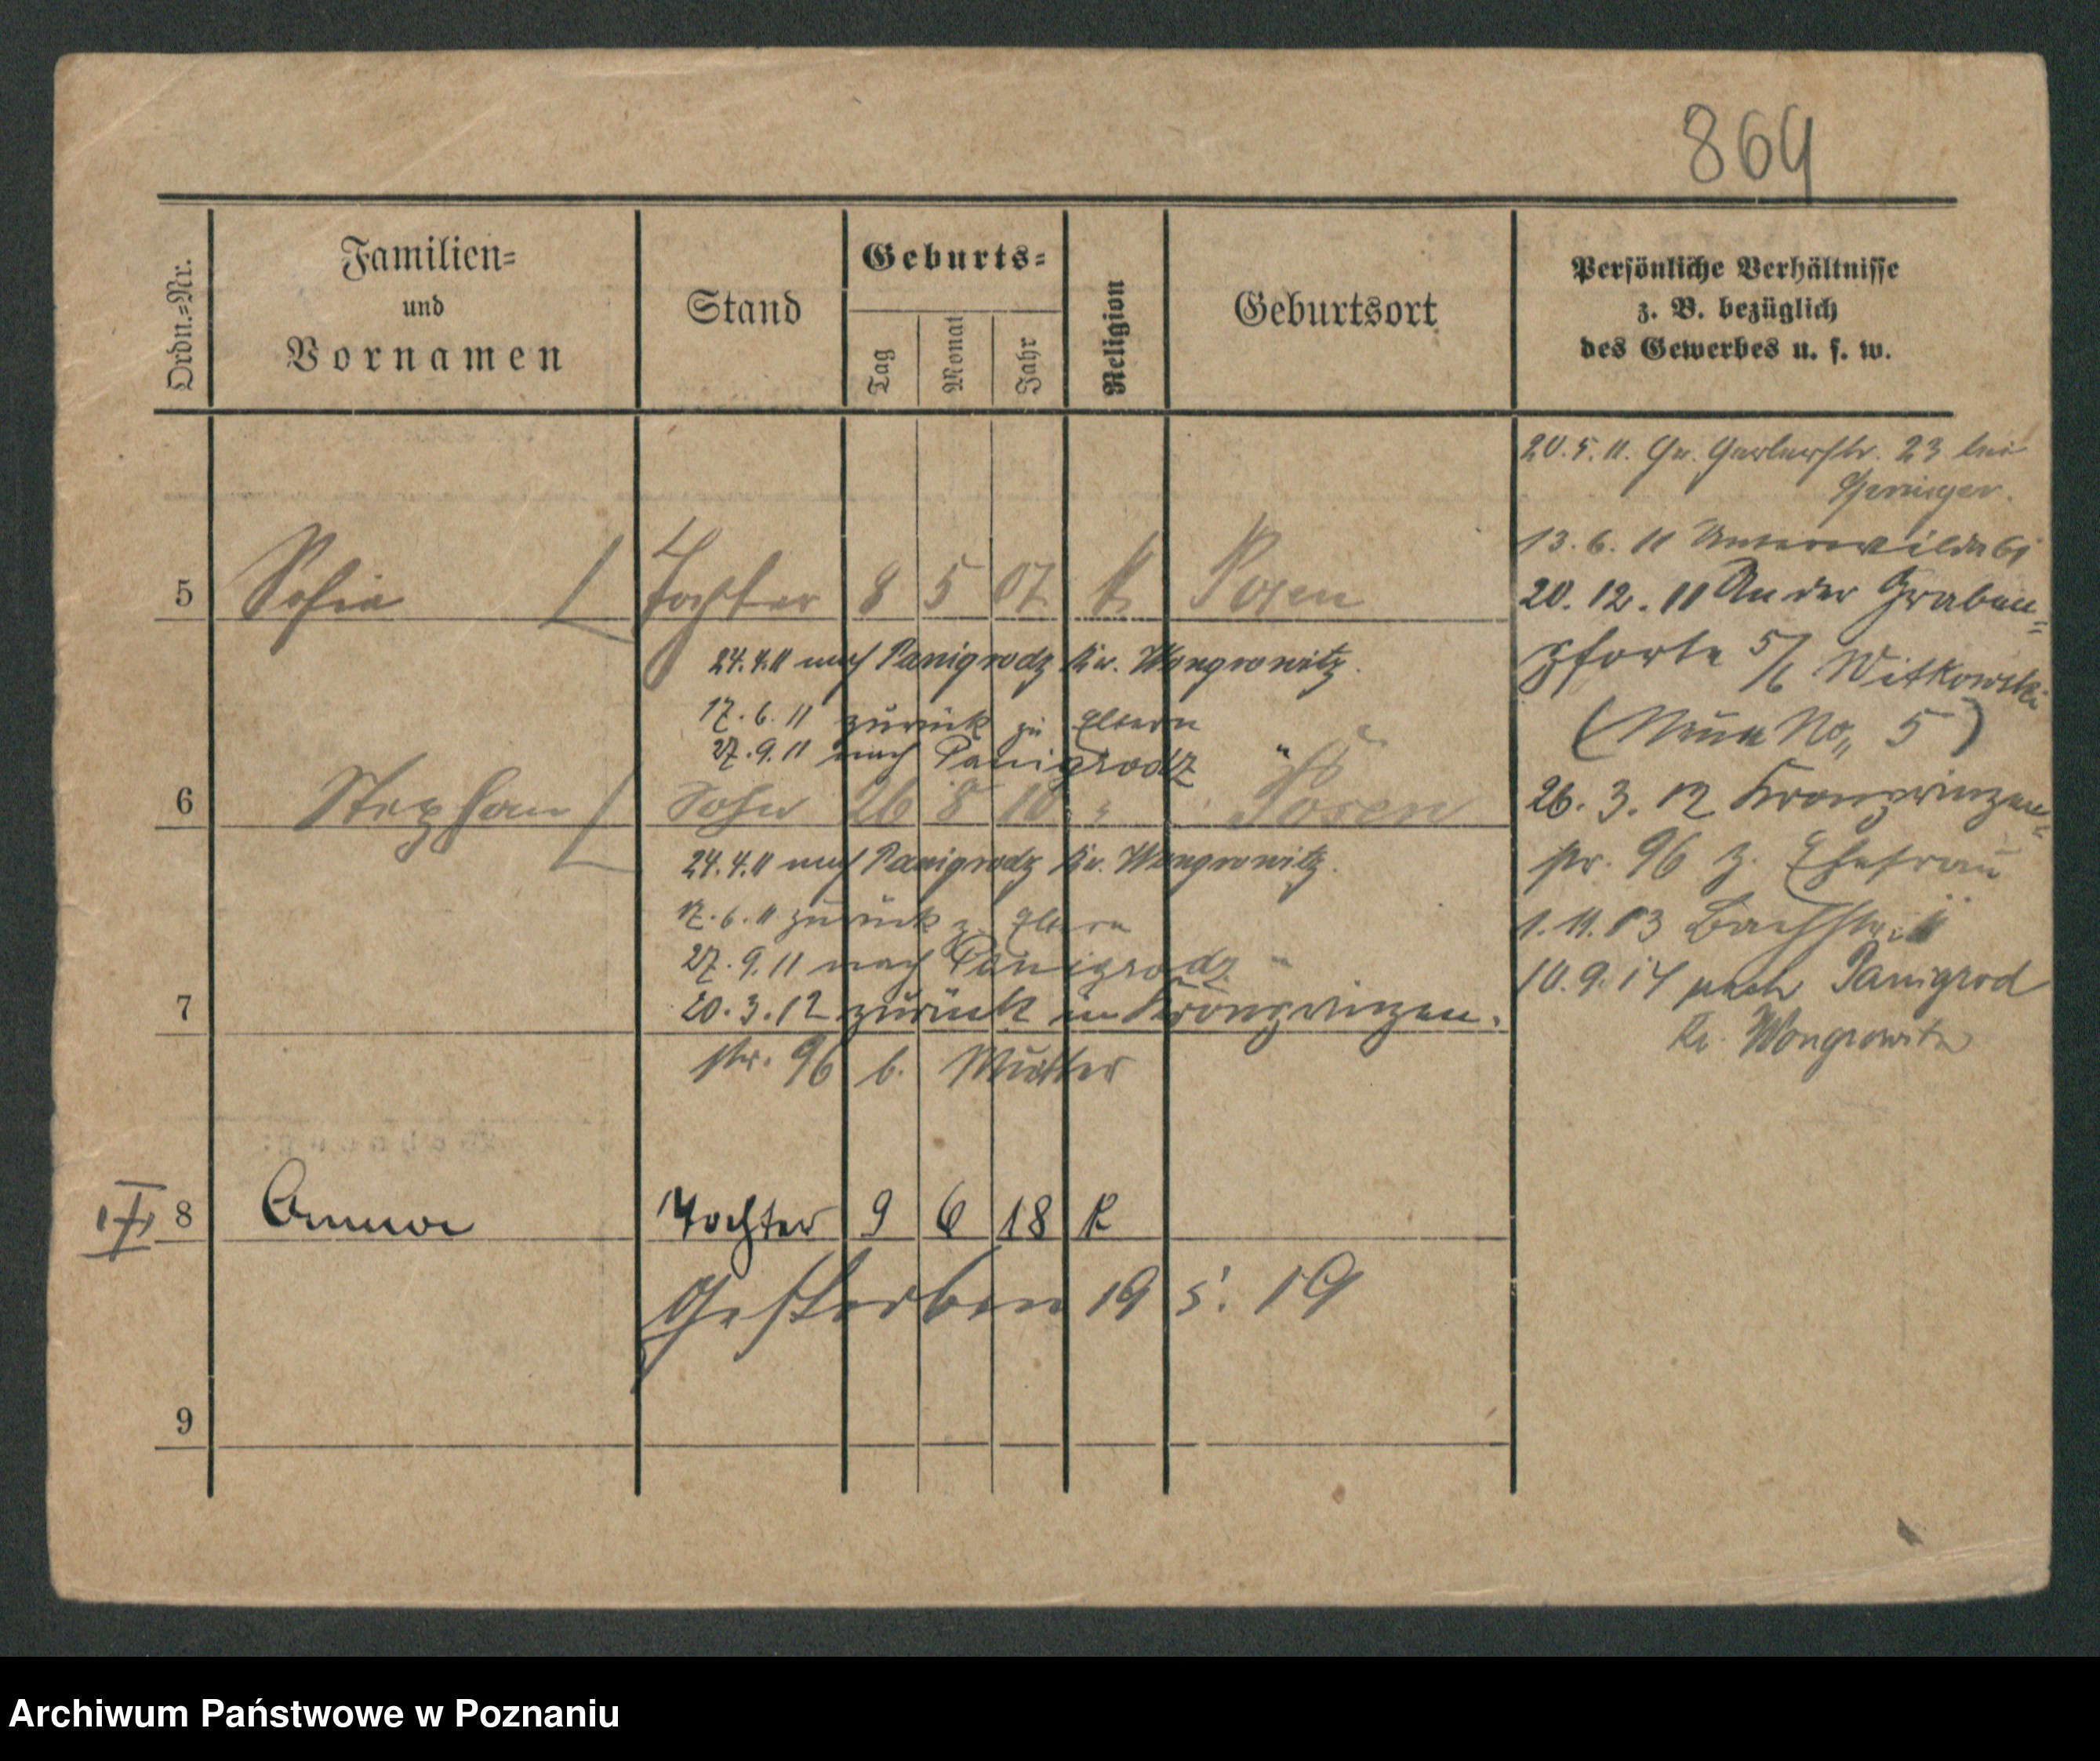 869
Ordn.=Nr.
Familien=
und
Vornamen
Stand
Geburts=
Tag
Monat
Jahr
Religion
Geburtsort
Persönliche Verhältnisse
z. B. bezüglich
des Gewerbes u. s. w.
5 Sofia Tochter 8 5 07 K. Posen
24.4.11 nach Panigrodz Kr. Wongrowitz.
17.6.11 zurück zu Eltern
27.9.11 nach Panigrodz
6 Stephan Sohn 26 8 10 " Posen
24.4.11 nach Panigrodz Kr. Wongrowitz.
17.6.11 zurück z. Eltern
27.9.11 nach Panigrodz
7 20.3.12 zurück in Kronprinzen.
str. 96 b. Mutter
8 Anna Tochter 9 6 18 K
Gestorben 19 5. 19
9
20.5.11. Gr. Gerberstr. 23 bei
13.6.11 Unterwilda
20.12.11 An der Graben=
pforte 5/6 Witkowski
(Neue No. 5)
26.3.12 Kronprinzen=
str. 96 z. Ehefrau
1.11.13 Bachstr.
10.9.14 nach Panigrod
Kr. Wongrowitz
Archiwum Państwowe w Poznaniu